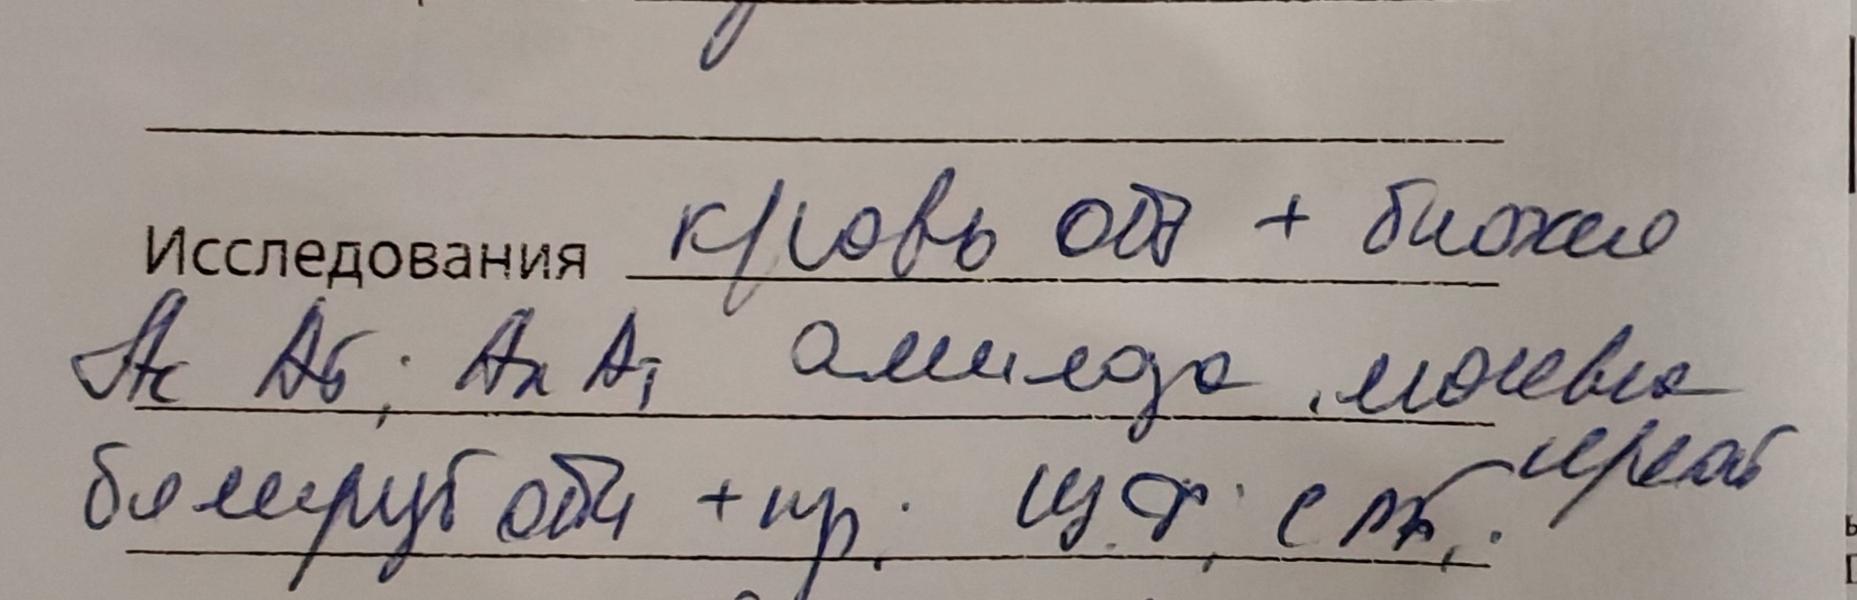 Исследования кровь общ + биохим
Ас Аб; Ал Ат амилаза, мочевина
билируб общ + пр. щф, креат